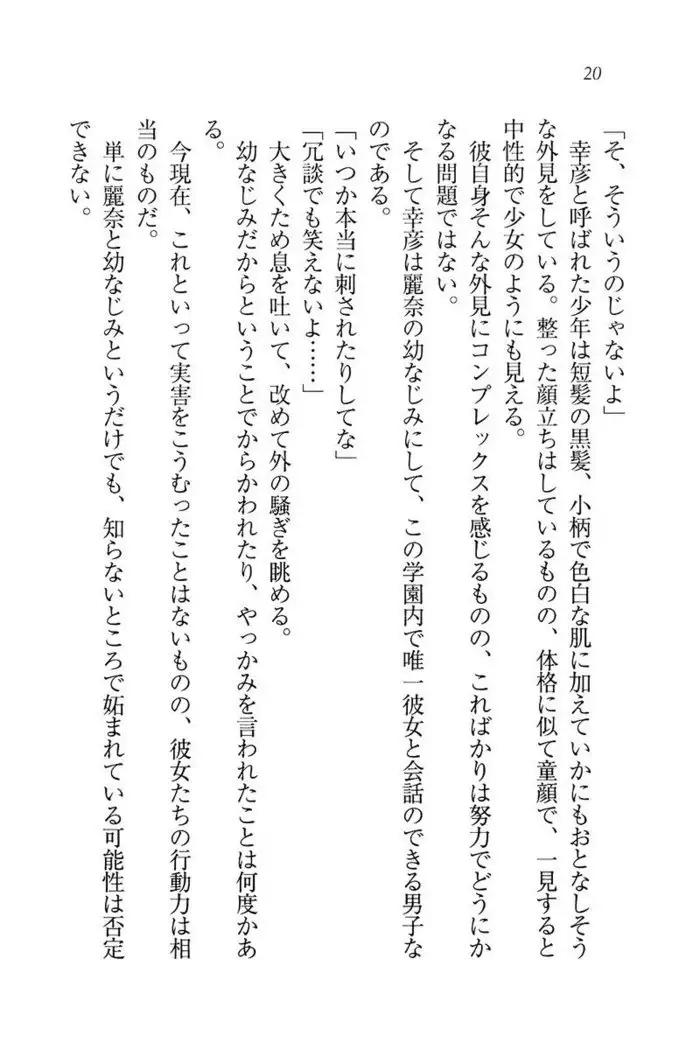 20
「そ、そういうのじゃないよ」
　幸彦と呼ばれた少年は短髪の黒髪、小柄で色白な肌に加えていかにもおとなしそう
な外見をしている。整った顔立ちはしているものの、体格に似て童顔で、一見すると
中性的で少女のようにも見える。
　彼自身そんな外見にコンプレックスを感じるものの、こればかりは努力でどうにか
なる問題ではない。
　そして幸彦は麗奈の幼なじみにして、この学園内で唯一彼女と会話のできる男子な
のである。
「いつか本当に刺されたりしてな」
「冗談でも笑えないよ……」
　大きくため息を吐いて、改めて外の騒ぎを眺める。
　幼なじみだからということでからかわれたり、やっかみを言われたことは何度かあ
る。
　今現在、これといって実害をこうむったことはないものの、彼女たちの行動力は相
当のものだ。
　単に麗奈と幼なじみというだけでも、知らないところで妬まれている可能性は否定
できない。